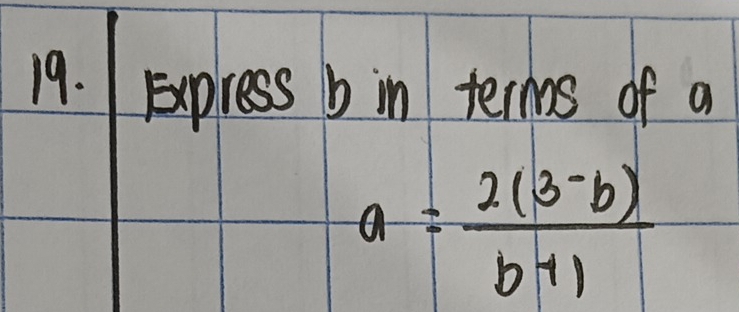 19. Express b in terms of a
a = 2(3-b) / b+1